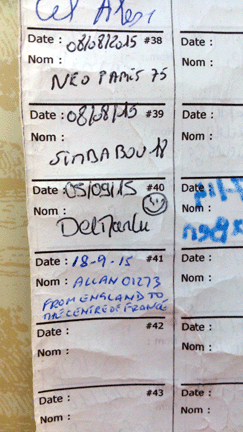 Date : 08/08/2015 #38
Nom :
NEO PARIS 75
Date : 08/08/15 #39
Nom :
SIMBABOU 18
Date : 05/09/15 #40
Nom :
Date : 18-9-15 #41
Nom : ALLAN 01273
FROM ENGLAND TO
THE CENTRE DE FRANCE
Date : #42
Nom :
Date : #43
Nom :
Date :
Nom :
Date :
Nom :
Date :
Date :
Nom :
Date :
Nom :
Date :
Nom :